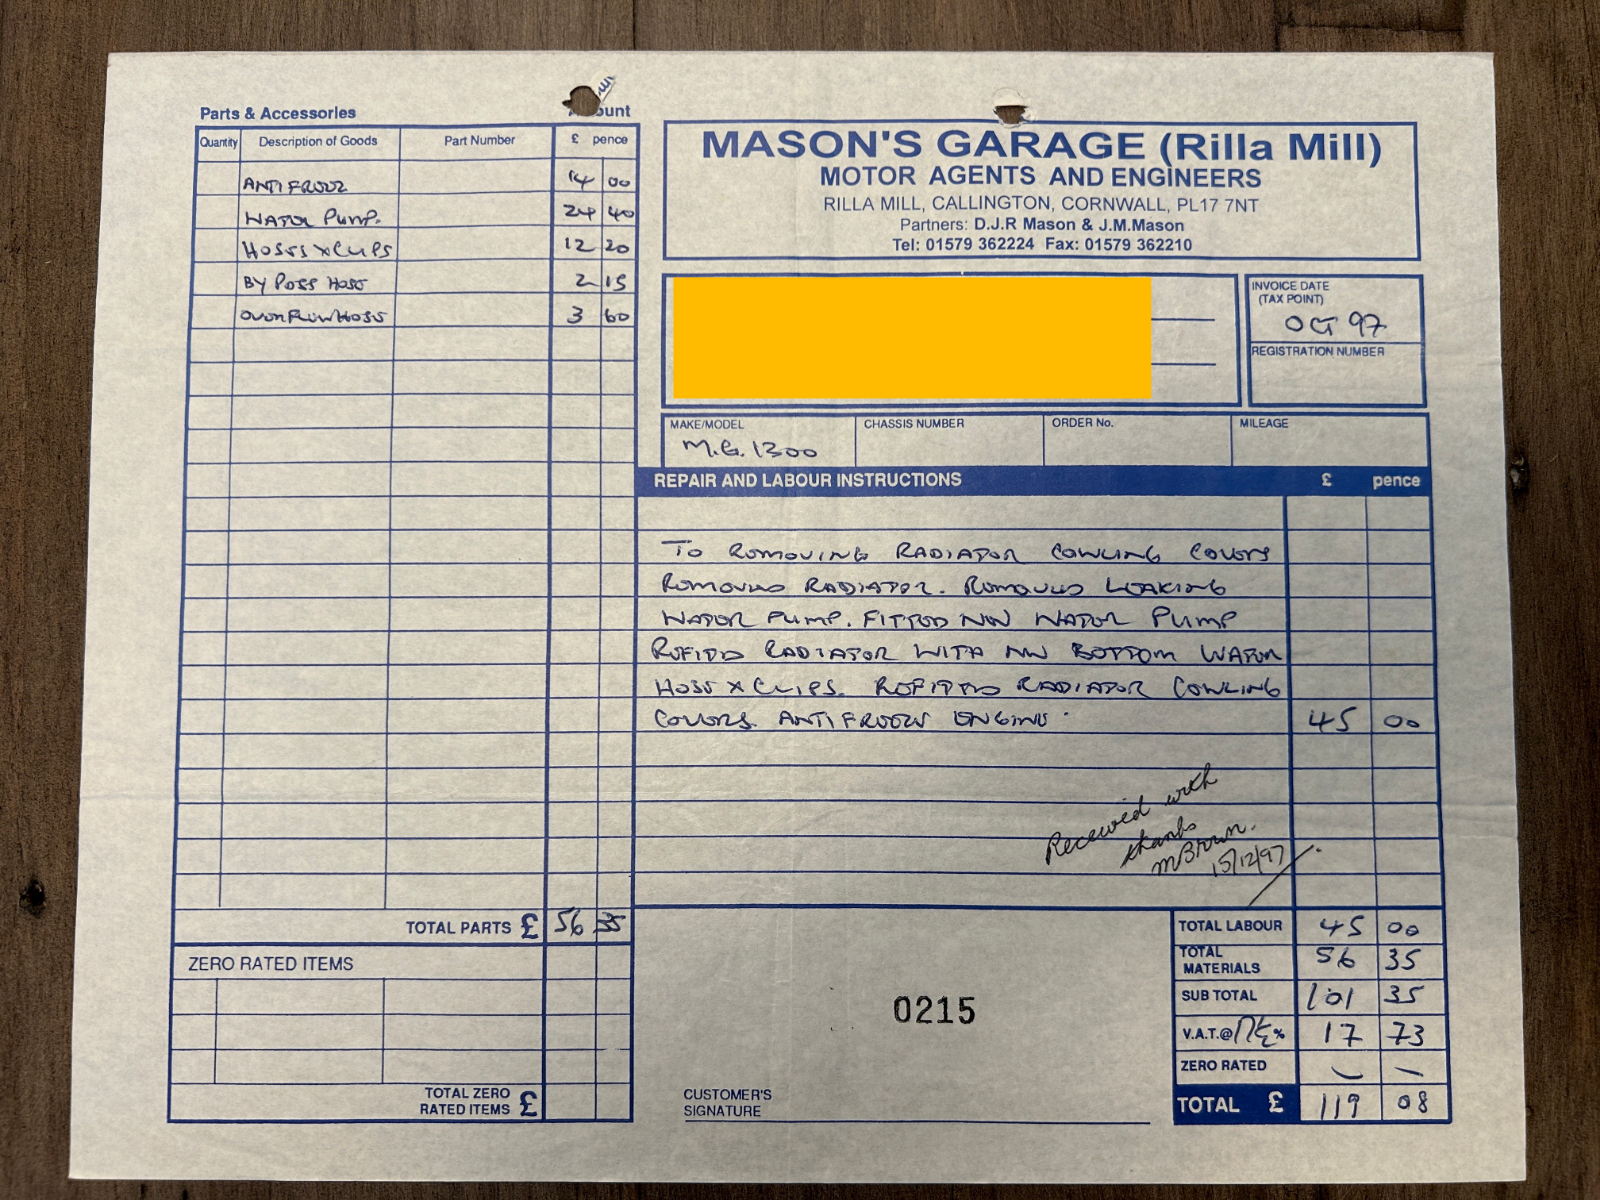 Parts & Accessories
ount
Quantity Description of Goods Part Number £ pence
ANTIFREEZE 14 00
WATER PUMP. 24 40
HOSES x CLIPS 12 20
BY PASS HOSE 2 15
OVERFLOW HOSE 3 60
TOTAL PARTS £ 56 35
ZERO RATED ITEMS
TOTAL ZERO
RATED ITEMS £
MASON'S GARAGE (Rilla Mill)
MOTOR AGENTS AND ENGINEERS
RILLA MILL, CALLINGTON, CORNWALL, PL17 7NT
Partners: D.J.R Mason & J.M.Mason
Tel: 01579 362224 Fax: 01579 362210
INVOICE DATE
(TAX POINT)
OCT 97
REGISTRATION NUMBER
MAKE/MODEL CHASSIS NUMBER ORDER No. MILEAGE
M.G. 1300
REPAIR AND LABOUR INSTRUCTIONS £ pence
TO REMOVING RADIATOR COWLING COVERS
REMOVED RADIATOR. REMOVED LEAKING
WATER PUMP. FITTED NEW WATER PUMP
REFITTED RADIATOR WITH NEW BOTTOM WATER
HOSE x CLIPS. REFITTED RADIATOR COWLING
COVERS. ANTIFREEZE ENGINE. 45 00
Received with
thanks
15/12/97
TOTAL LABOUR 45 00
TOTAL
MATERIALS 56 35
SUB TOTAL 101 35
V.A.T.@ 17½ % 17 73
ZERO RATED — —
TOTAL £ 119 08
0215
CUSTOMER'S
SIGNATURE